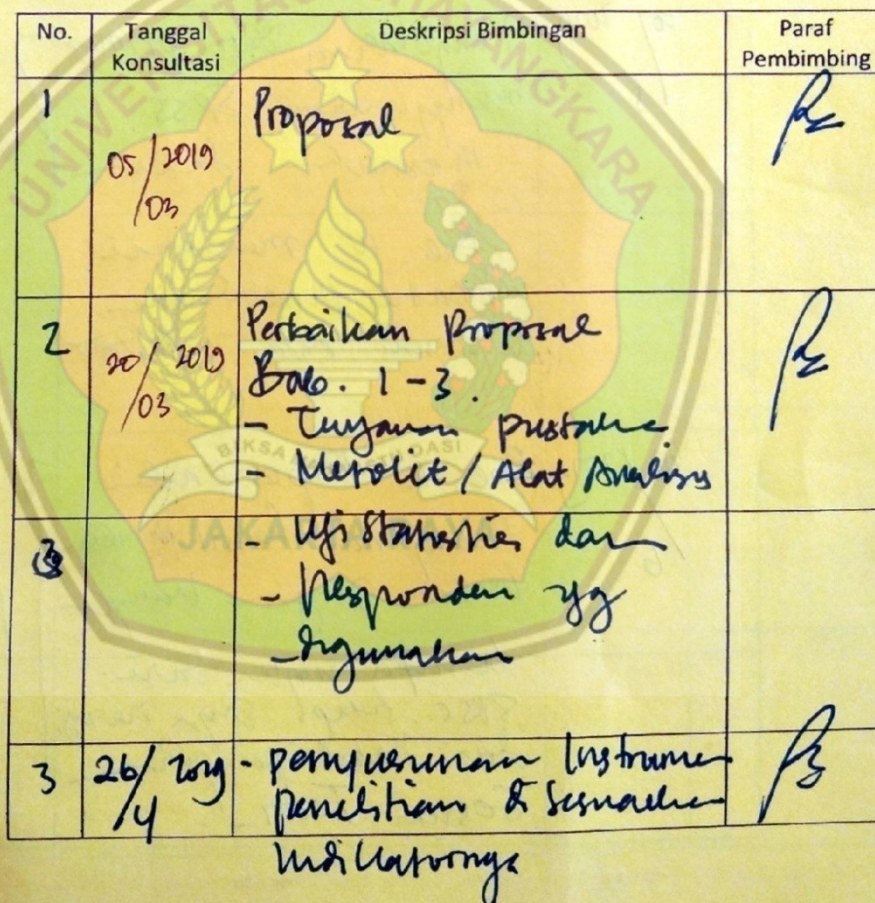 No. Tanggal Konsultasi Deskripsi Bimbingan Paraf Pembimbing
1 05/2019 /03 Proposal
2 20/2019 /03 Perbaikan Proposal
Bab. 1 - 3.
- Tinjauan pustaka
- Metolit / Alat Analisis
3 - Uji Statistics dan
- Responden yg
- digunakan
3 26/2019 /4 - penyusunan Instrumen
penelitian & Sesuaikan
Indikatornya
UNIVERSITAS BHAYANGKARA
JAKARTA RAYA